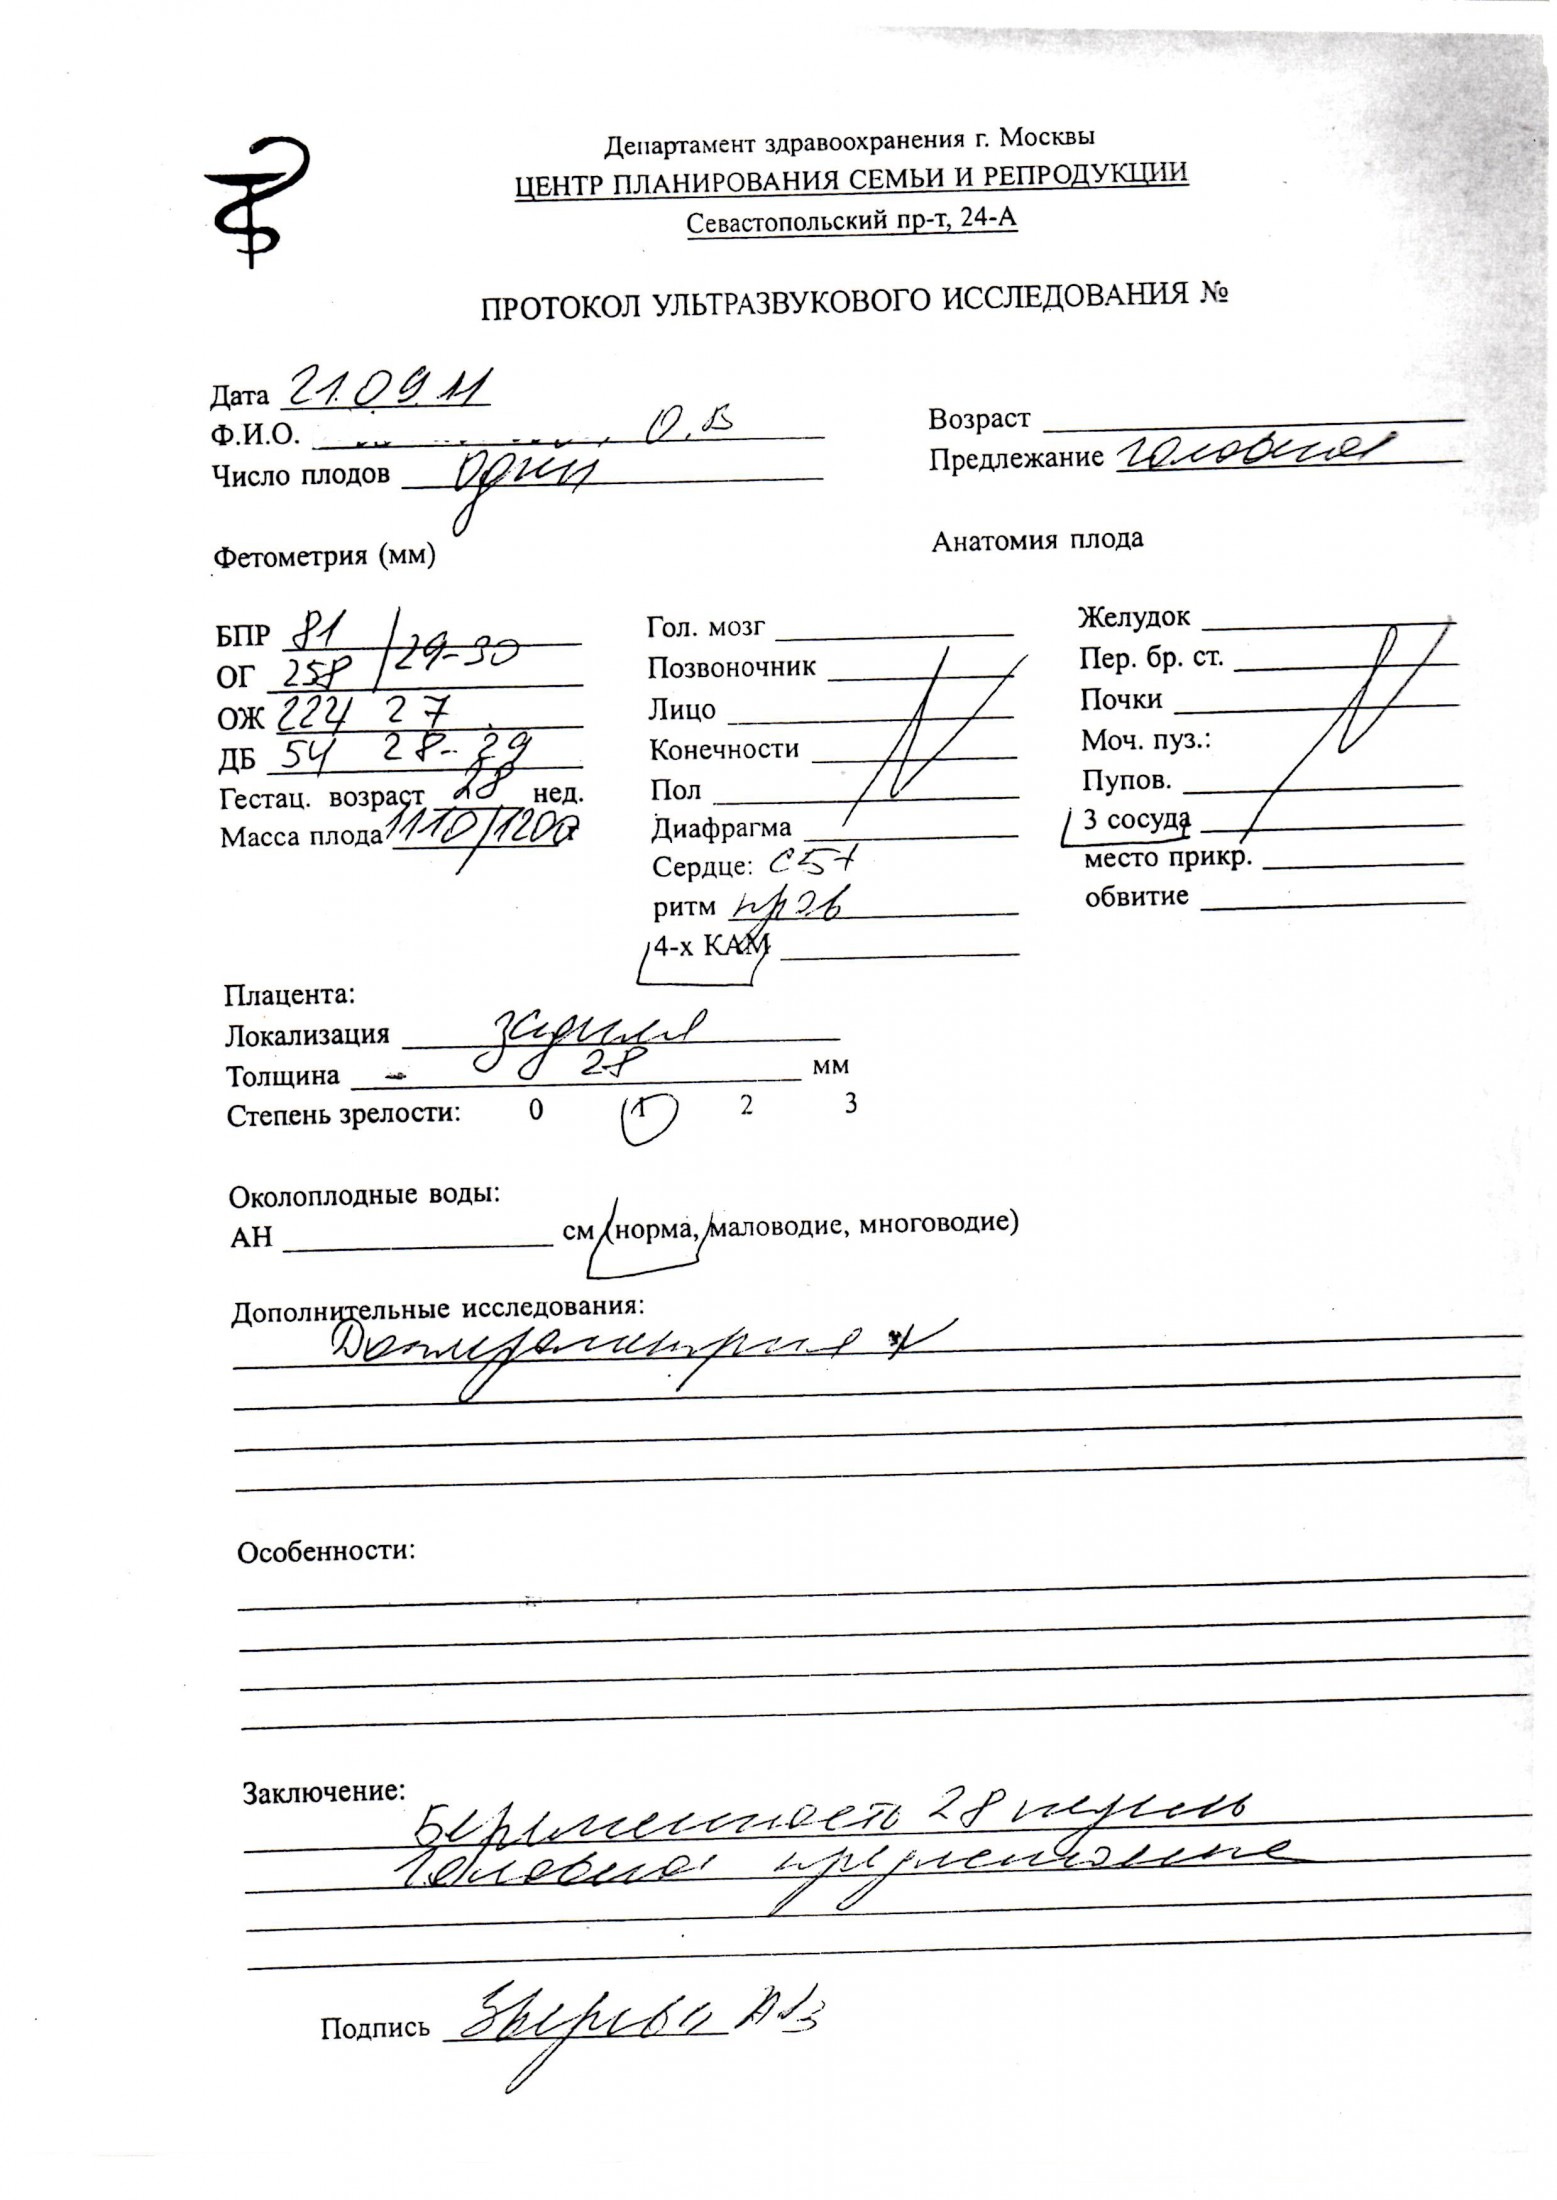 Департамент здравоохранения г. Москвы
ЦЕНТР ПЛАНИРОВАНИЯ СЕМЬИ И РЕПРОДУКЦИИ
Севастопольский пр-т, 24-А
ПРОТОКОЛ УЛЬТРАЗВУКОВОГО ИССЛЕДОВАНИЯ №
Дата 21.09.11
Ф.И.О. О.В
Возраст
Число плодов один
Предлежание головное
Фетометрия (мм)
Анатомия плода
БПР 81
ОГ 258 29-30
ОЖ 224 27
ДБ 54 28-29
Гестац. возраст 28 нед.
Масса плода 1110/1200
Гол. мозг
Позвоночник
Лицо
Конечности
Пол
Диафрагма
Сердце: СБ+
ритм прав
4-х КАМ
Желудок
Пер. бр. ст.
Почки
Моч. пуз.:
Пупов.
3 сосуда
место прикр.
обвитие
N
N
Плацента:
Локализация задняя
Толщина 28 мм
Степень зрелости: 0 1 2 3
Околоплодные воды:
АН см (норма, маловодие, многоводие)
Дополнительные исследования:
Доплерометрия N
Особенности:
Заключение:
Беременность 28 недель
Головное предлежание
Подпись